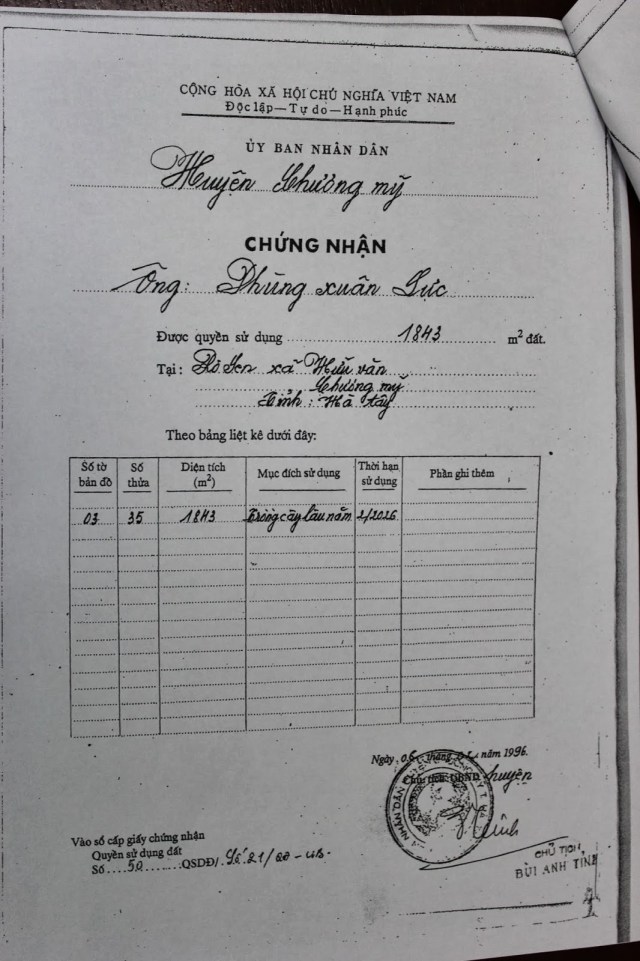 CỘNG HÒA XÃ HỘI CHỦ NGHĨA VIỆT NAM
Độc lập — Tự do — Hạnh phúc
ỦY BAN NHÂN DÂN
Huyện Chương mỹ
CHỨNG NHẬN
Ông: Phùng xuân Lực
Được quyền sử dụng 1843 m² đất.
Tại: xã Hữu văn
Chương mỹ
Tỉnh: Hà tây
Theo bảng liệt kê dưới đây:
Số tờ bản đồ Số thửa Diện tích (m²) Mục đích sử dụng Thời hạn sử dụng Phần ghi thêm
03 35 1843 Trồng cây lâu năm 2/2026
Ngày 06 tháng năm 1996
Chủ tịch UBND huyện
Vào sổ cấp giấy chứng nhận
Quyền sử dụng đất
Số 50 QSDĐ/ Số 21/QĐ-UB
CHỦ TỊCH
BÙI ANH TÍNH